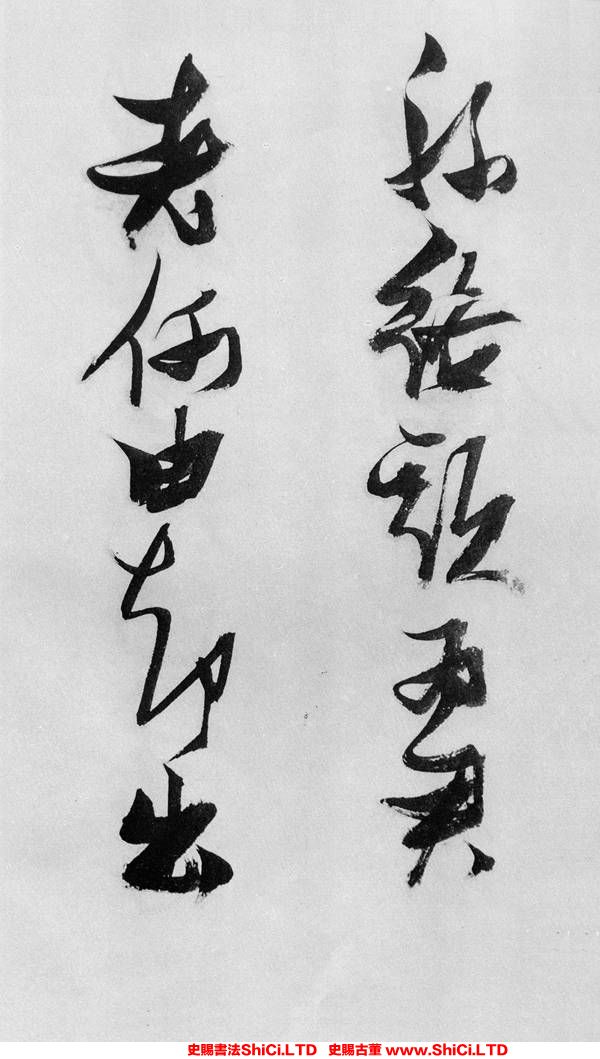 絲絡頭為君
老何由却出
史賜書法ShiCi.LTD 史賜古董 www.ShiCi.LTD